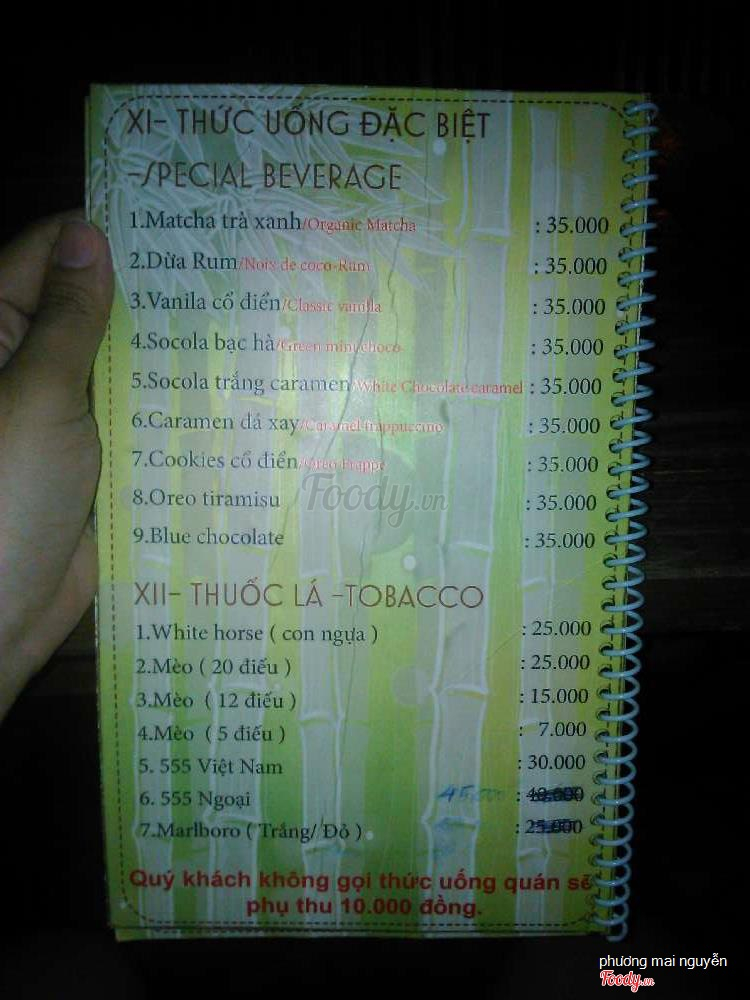 XI- THỨC UỐNG ĐẶC BIỆT
-SPECIAL BEVERAGE
1.Matcha trà xanh/Organic Matcha : 35.000
2.Dừa Rum/Noix de coco-Rum : 35.000
3.Vanila cổ điển/Classic vanilla : 35.000
4.Socola bạc hà/Green mint choco : 35.000
5.Socola trắng caramen/White Chocolate caramel : 35.000
6.Caramen đá xay/Caramel frappuccino : 35.000
7.Cookies cổ điển/Oreo Frappe : 35.000
8.Oreo tiramisu : 35.000
Foody.vn
9.Blue chocolate : 35.000
XII- THUỐC LÁ -TOBACCO
1.White horse ( con ngựa ) : 25.000
2.Mèo ( 20 điếu ) : 25.000
3.Mèo ( 12 điếu ) : 15.000
4.Mèo ( 5 điếu ) : 7.000
5. 555 Việt Nam : 30.000
6. 555 Ngoại 45.000 : 40.000
7.Marlboro ( Trắng/ Đỏ ) : 25.000
Quý khách không gọi thức uống quán sẽ
phụ thu 10.000 đồng.
phương mai nguyễn
Foody.vn